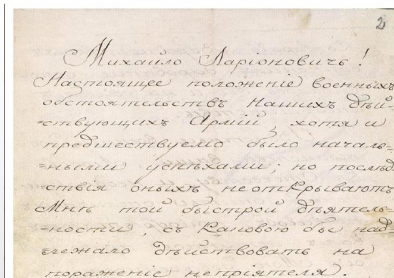 2
Михайло Ларіоновичь!
Настоящее положеніе военныхъ
обстоятельствъ нашихъ дѣй-
-ствующихъ Армій, хотя и
предшествуемо было началь-
-ными успѣхами; но послѣд
ствія оныхъ не открываютъ
Мнѣ той быстрой дѣятель-
-ности, съ каковою бы над-
-лежало дѣйствовать на
пораженіе непріятеля.